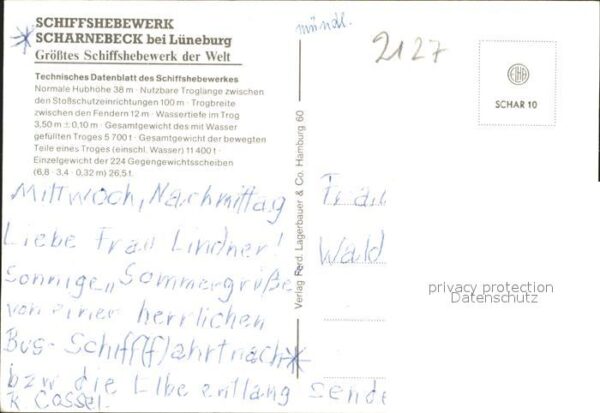 SCHIFFSHEBEWERK
SCHARNEBECK bei Lüneburg
Größtes Schiffshebewerk der Welt
Technisches Datenblatt des Schiffshebewerkes
Normale Hubhöhe 38 m · Nutzbare Troglänge zwischen
den Stoßschutzeinrichtungen 100 m · Trogbreite
zwischen den Fendern 12 m · Wassertiefe im Trog
3,50 m ± 0,10 m · Gesamtgewicht des mit Wasser
gefüllten Troges 5 700 t · Gesamtgewicht der bewegten
Teile eines Troges (einschl. Wasser) 11 400 t ·
Einzelgewicht der 224 Gegengewichtsscheiben
(6,8 · 3,4 · 0,32 m) 26,5 t.
Mittwoch, Nachmittag
Liebe Frau Lindner!
Sonnige „Sommergrüße
von einer herrlichen
Bus-Schiff(f)ahrt nach*
bzw die Elbe entlang sende
K Cossel.
Verlag Ferd. Lagerbauer & Co. Hamburg 60
mündl.
2127
SCHAR 10
Frau
Wald
privacy protection
Datenschutz